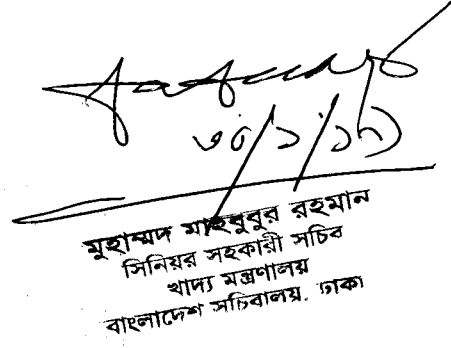 ৩০/১/১৭
মুহাম্মদ মাহবুবুর রহমান
সিনিয়র সহকারী সচিব
খাদ্য মন্ত্রণালয়
বাংলাদেশ সচিবালয়, ঢাকা